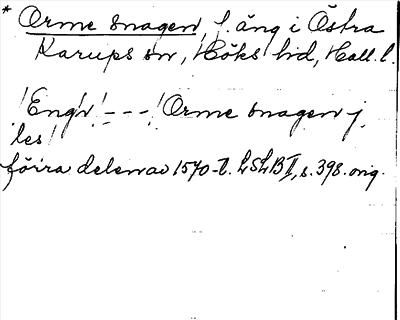 * Orme snagen, f. äng i Östra
Karups sn, Höks hd, Hall. l.
'Engn' --- 'Orme snagen j
les'
förra delen av 1570-t. LSLB II, s. 398. orig.